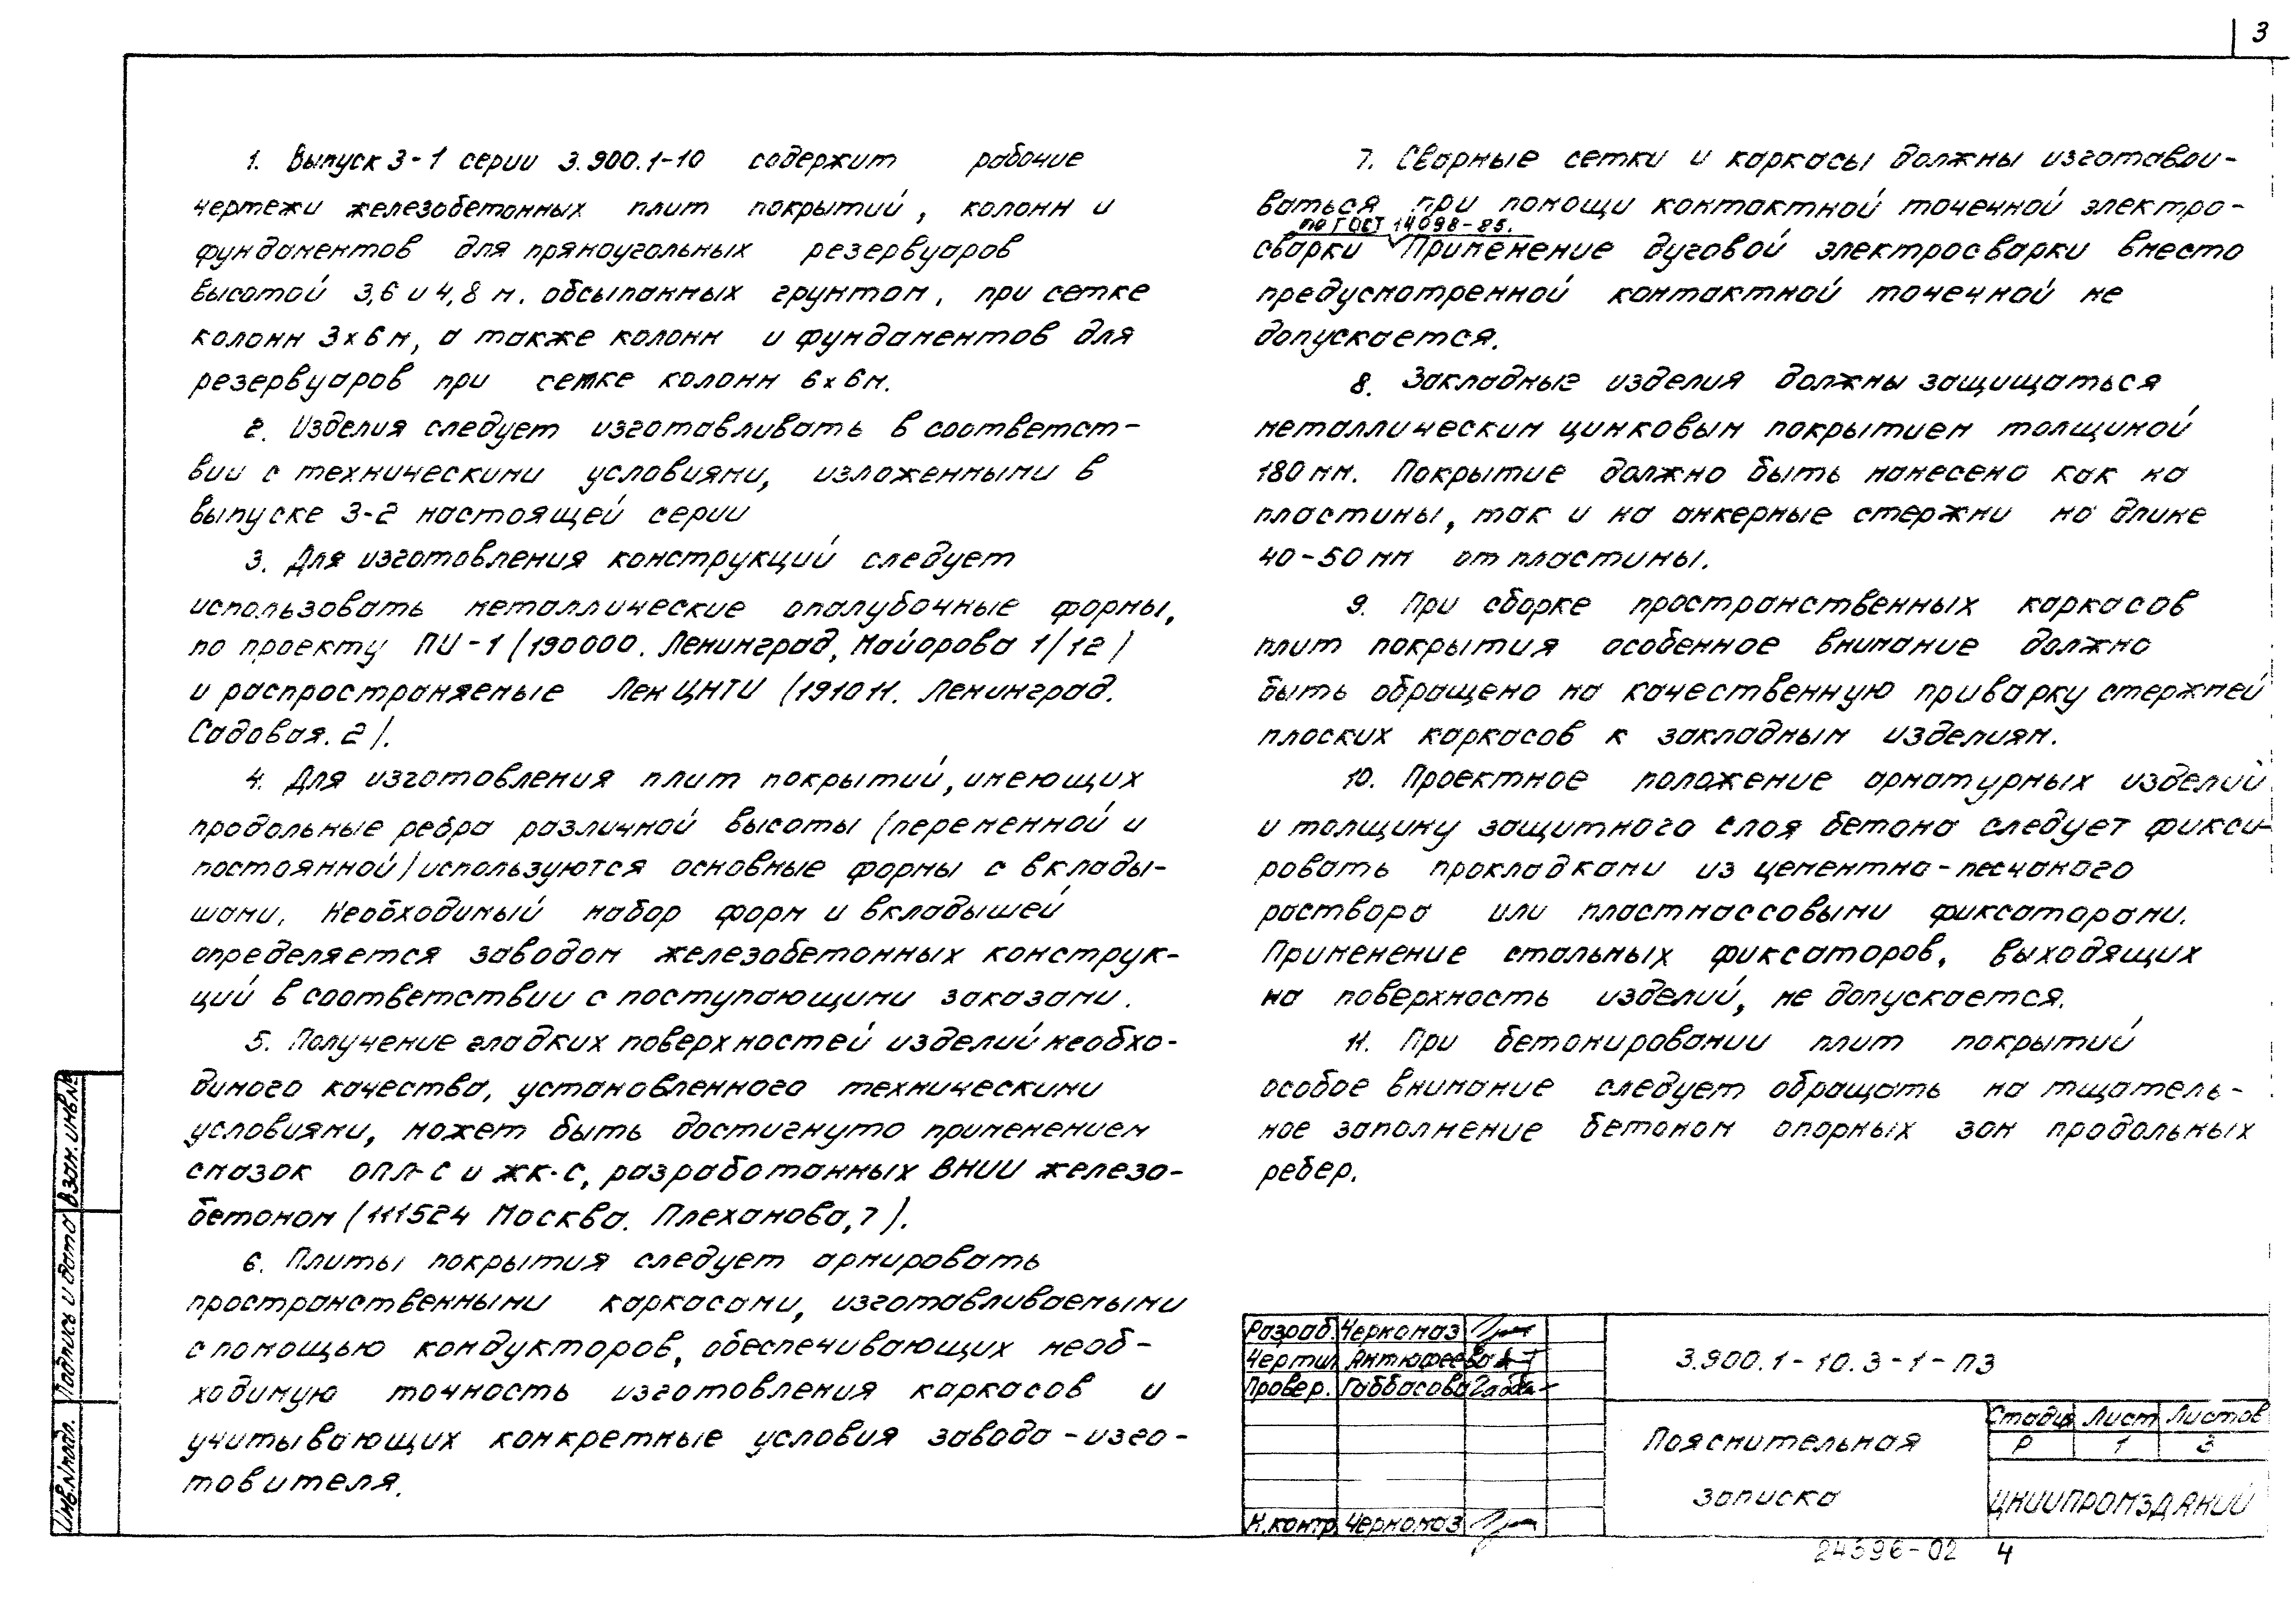 3
1. Выпуск 3-1 серии 3.900.1-10 содержит рабочие
чертежи железобетонных плит покрытий, колонн и
фундаментов для прямоугольных резервуаров
высотой 3,6 и 4,8 м. обсыпанных грунтом, при сетке
колонн 3×6 м, а также колонн и фундаментов для
резервуаров при сетке колонн 6×6м.
2. Изделия следует изготавливать в соответст-
вии с техническими условиями, изложенными в
выпуске 3-2 настоящей серии
3. Для изготовления конструкций следует
использовать металлические опалубочные формы,
по проекту ПИ-1 (190000. Ленинград, Майорова 1/12)
и распространяемые ЛенЦНТИ (191011. Ленинград.
Садовая. 2).
4. Для изготовления плит покрытий, имеющих
продольные ребра различной высоты (переменной и
постоянной) используются основные формы с вклады-
шами. Необходимый набор форм и вкладышей
определяется заводом железобетонных конструк-
ций в соответствии с поступающими заказами.
5. Получение гладких поверхностей изделий необхо-
димого качества, установленного техническими
условиями, может быть достигнуто применением
смазок ОПЛ-С и ЖК-С, разработанных ВНИИ железо-
бетоном (111524 Москва. Плеханова, 7).
6. Плиты покрытия следует армировать
пространственными каркасами, изготавливаемыми
с помощью кондукторов, обеспечивающих необ-
ходимую точность изготовления каркасов и
учитывающих конкретные условия завода-изго-
товителя.
7. Сварные сетки и каркасы должны изготавли-
ваться при помощи контактной точечной электро-
по ГОСТ 14098-85.
сварки Применение дуговой электросварки вместо
предусмотренной контактной точечной не
допускается.
8. Закладные изделия должны защищаться
металлическим цинковым покрытием толщиной
180 мм. Покрытие должно быть нанесено как на
пластины, так и на анкерные стержни на длине
40-50 мм от пластины.
9. При сборке пространственных каркасов
плит покрытия особенное внимание должно
быть обращено на качественную приварку стержней
плоских каркасов к закладным изделиям.
10. Проектное положение арматурных изделий
и толщину защитного слоя бетона следует фикси-
ровать прокладками из цементно-песчаного
раствора или пластмассовыми фиксаторами.
Применение стальных фиксаторов, выходящих
на поверхность изделий, не допускается.
11. При бетонировании плит покрытий
особое внимание следует обращать на тщатель-
ное заполнение бетоном опорных зон продольных
ребер.
Взам. инв.№
Подпись и дата
Инв.№подл.
Разраб. Черномаз
Чертил Антюфеева
Провер. Габбасова
Н.контр. Черномаз
3.900.1-10.3-1-ПЗ
Пояснительная
записка
Стадия Лист Листов
Р 1 3
ЦНИИПРОМЗДАНИЙ
24396-02 4